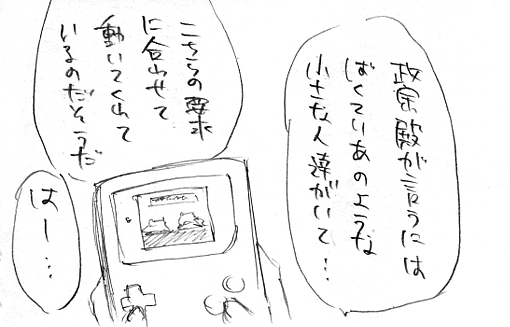 政宗殿が言うには
ばくていあのような
小さな人達がいて…
こちらの要求
に合わせて
動いてくれて
いるのだそうだ
はー…